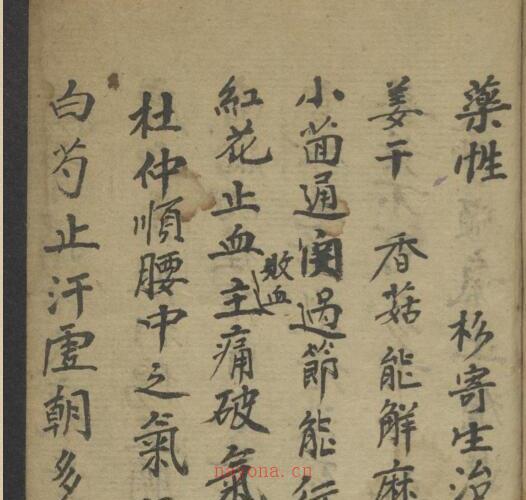 藥性 杉寄生治
姜干 香菇能解麻
小茴通関過節能行
敗血
紅花止血主痛破氣
杜仲順腰中之氣
白芍止汗虛朝多
nayona.cn